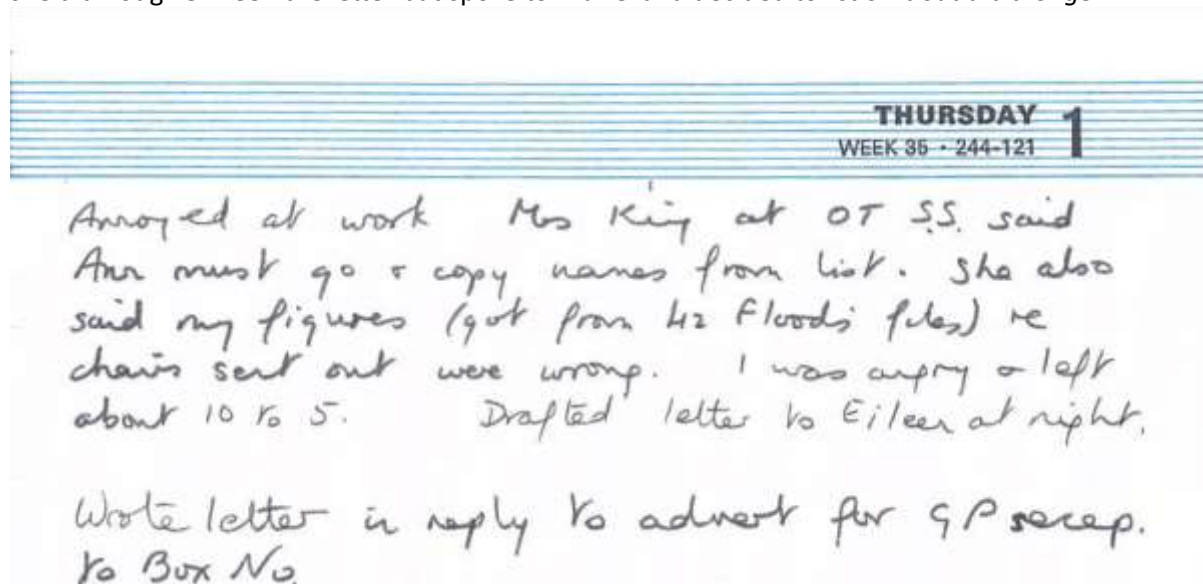 THURSDAY 1
WEEK 35 · 244-121
Annoyed at work Mrs King at OT S.S. said
Ann must go & copy names from list. She also
said my figures (got from 42 Floods files) re
chairs sent out were wrong. I was angry & left
about 10 to 5. Drafted letter to Eileen at night.
Wrote letter in reply to advert for GP recep.
to Box No.